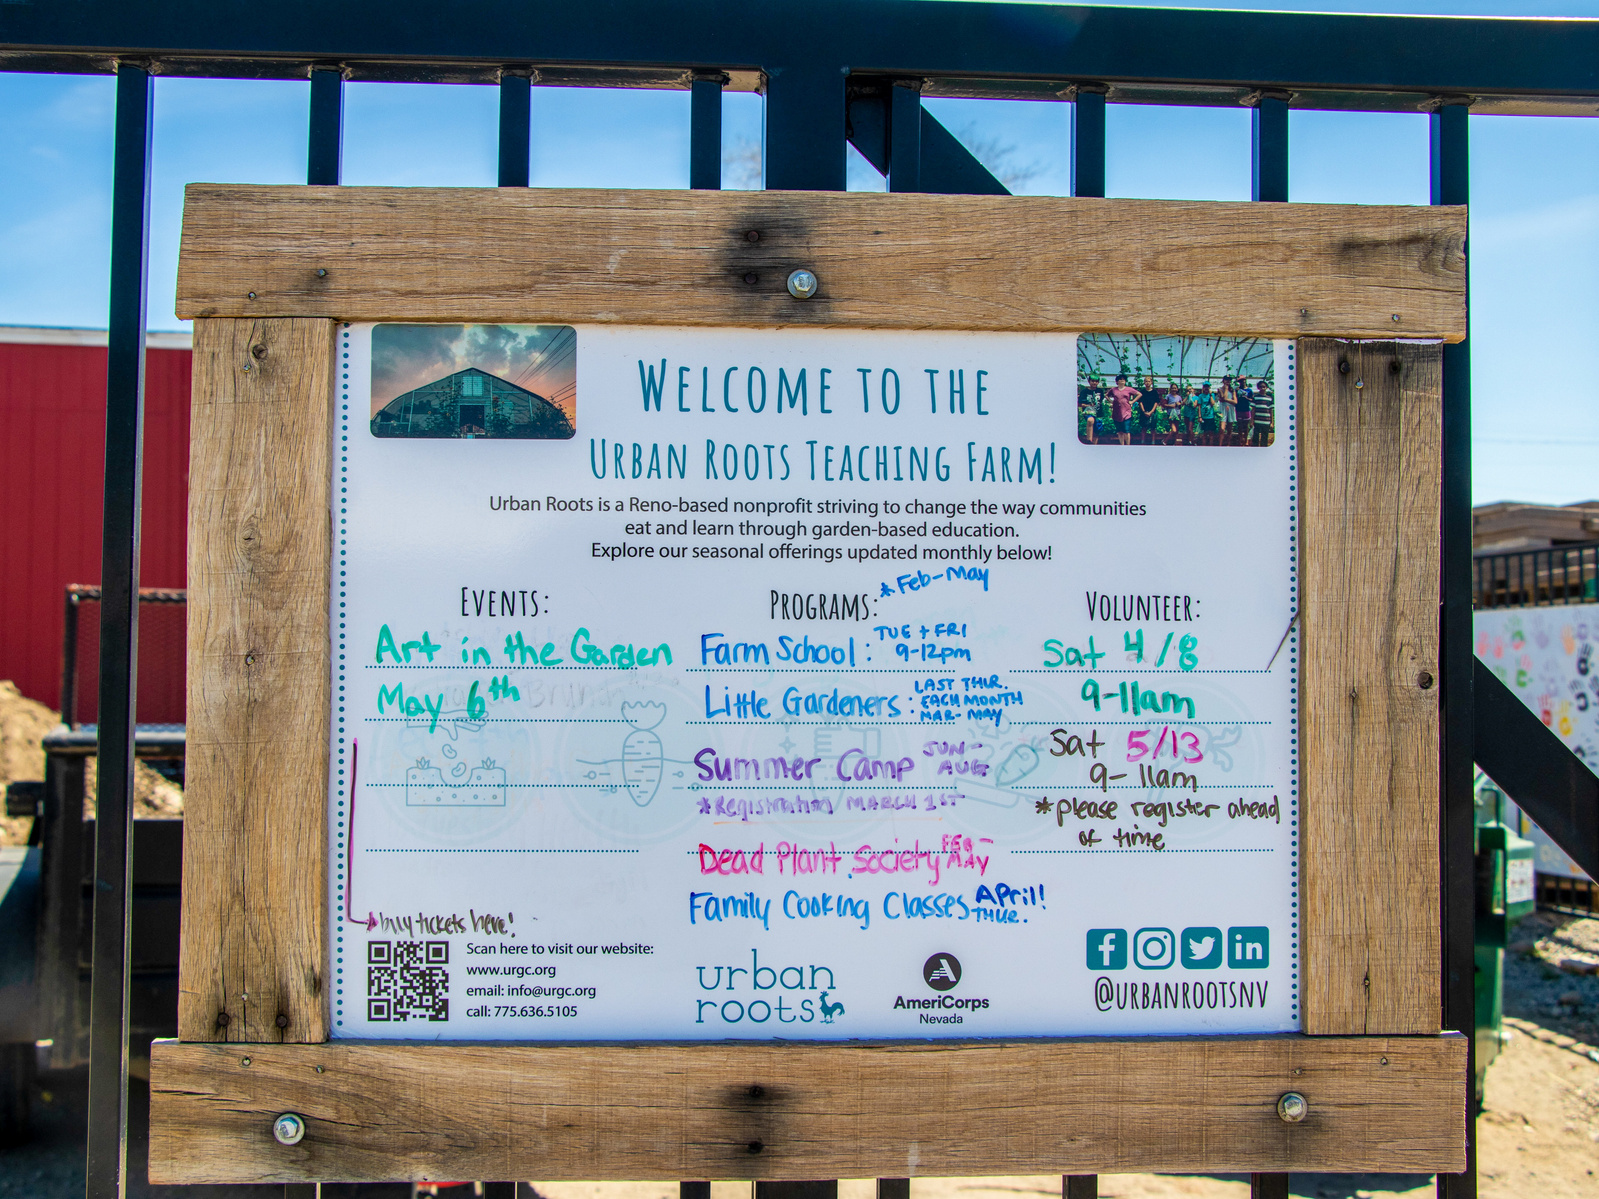 WELCOME TO THE
URBAN ROOTS TEACHING FARM!
Urban Roots is a Reno-based nonprofit striving to change the way communities
eat and learn through garden-based education.
Explore our seasonal offerings updated monthly below!
EVENTS:
Art in the Garden
May 6th
*buy tickets here!
PROGRAMS:
*Feb-May
Farm School: TUE + FRI
9-12pm
Little Gardeners: LAST THUR.
EACH MONTH
MAR-MAY
Summer Camp JUN-
AUG
*Registration MARCH 1ST
Dead Plant Society FEB-
MAY
Family Cooking Classes April!
THUR.
VOLUNTEER:
Sat 4/8
9-11am
Sat 5/13
9-11am
*please register ahead
of time
Scan here to visit our website:
www.urgc.org
email: info@urgc.org
call: 775.636.5105
urban
roots
AmeriCorps
Nevada
f in
@URBANROOTSNV